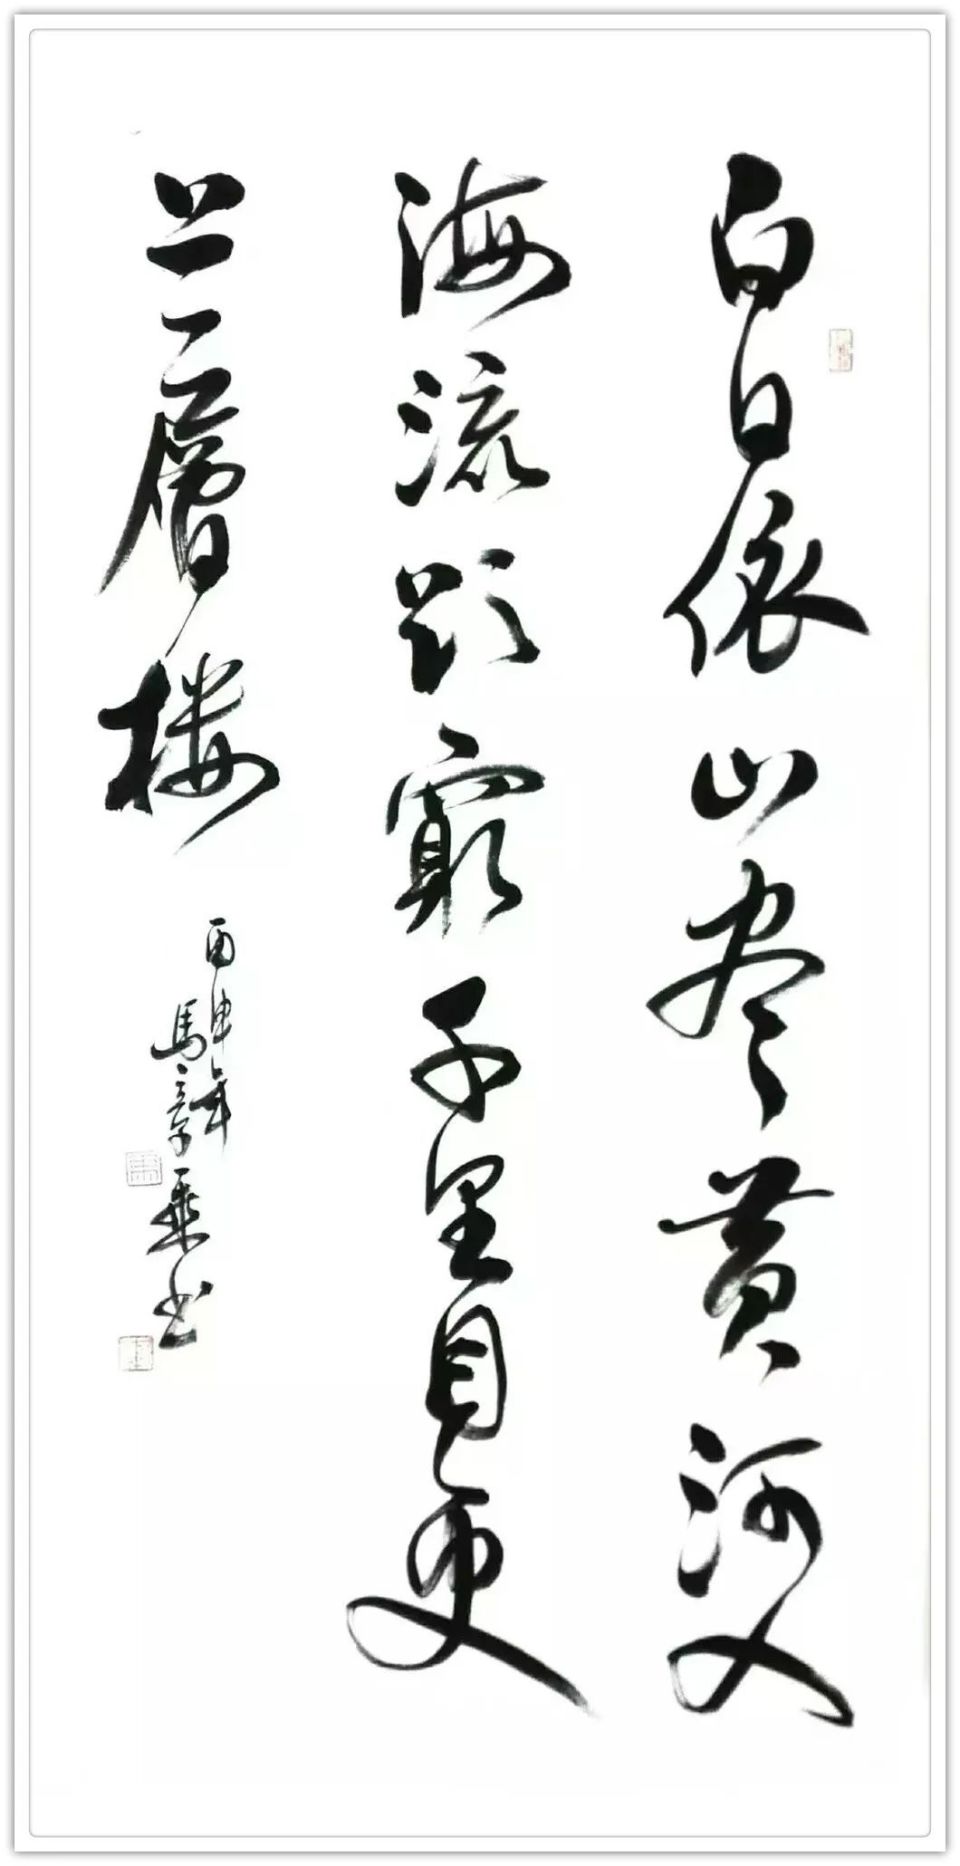 白日依山尽黄河入
海流欲穷千里目更
上一层樓
丙申年
馬章乘书